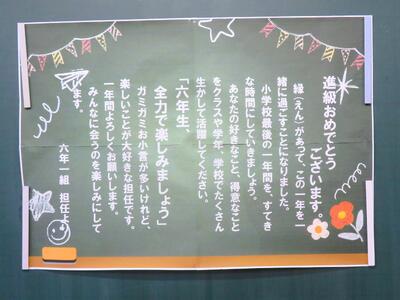 進級おめでとう
ございます。
縁(えん)があって、この一年を一
緒に過ごすことになりました。
小学校最後の一年間を、すてき
な時間にしていきましょう。
あなたの好きなこと、得意なこと
をクラスや学年、学校でたくさん
生かして活躍してください。
「六年生、
全力で楽しみましょう」
ガミガミお小言が多いけれど、
楽しいことが大好きな担任です。
一年間よろしくお願いします。
みんなに会うのを楽しみにして
います。
六年一組 担任より